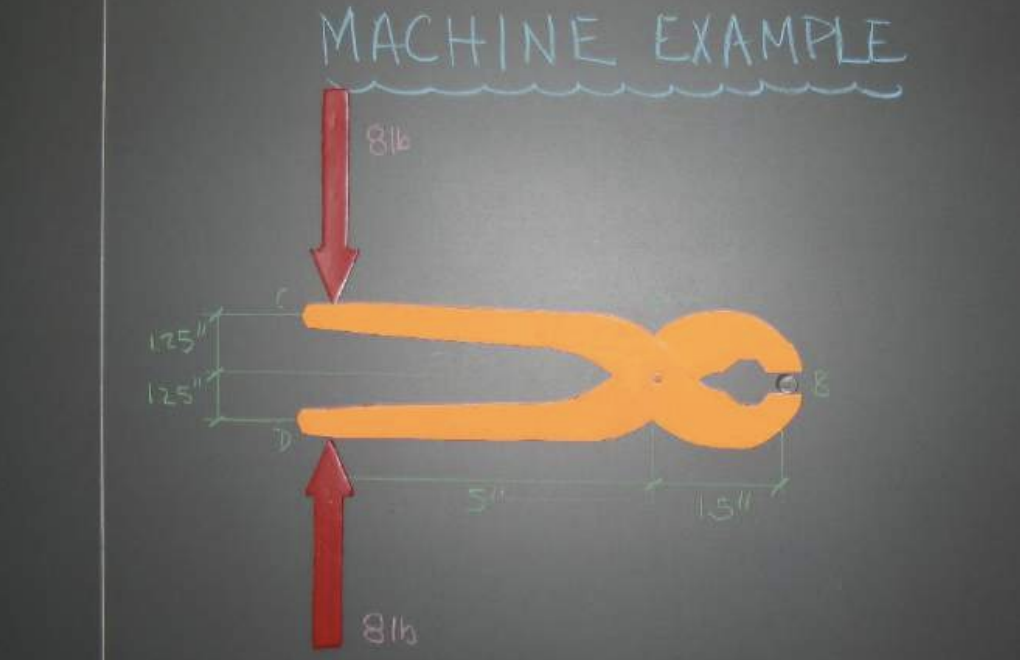 MACHINE EXAMPLE
8lb
C
1.25"
1.25"
B
D
5"
1.5"
8lb